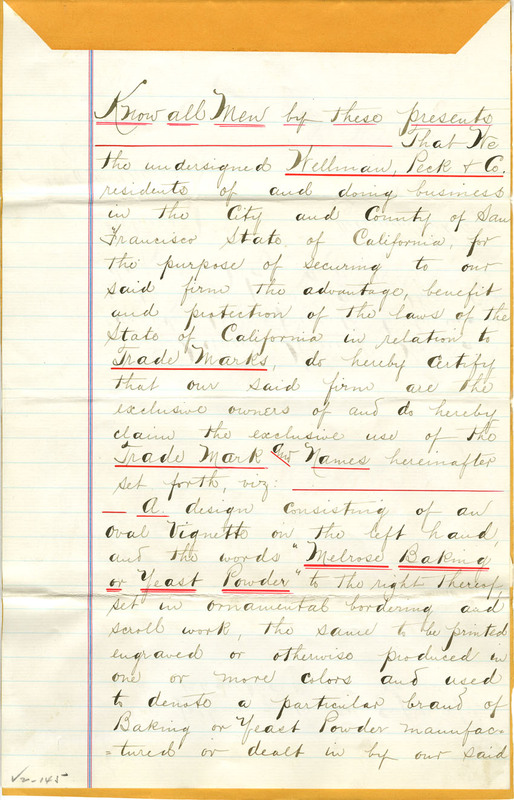 Know all Men by these presents
That We
the undersigned Wellman, Peck & Co.
residents of and doing business
in the City and County of San
Francisco State, of California, for
the purpose of securing to our
said firm the advantage, benefit
and protection of the laws of the
State of California in relation to
Trade Marks, do hereby Certify
that our said firm are the
exclusive owners of and do hereby
claim the exclusive use of the
Trade Mark and Names hereinafter
set forth, viz:
A design consisting of an
oval Vignette on the left hand,
and the words "Melrose Baking
or Yeast Powder" to the right thereof,
set in ornamental bordering and
scroll work, the same to be printed
engraved or otherwise produced in
one or more colors and used
to denote a particular brand of
Baking or Yeast Powder manufac-
=tured or dealt in by our said